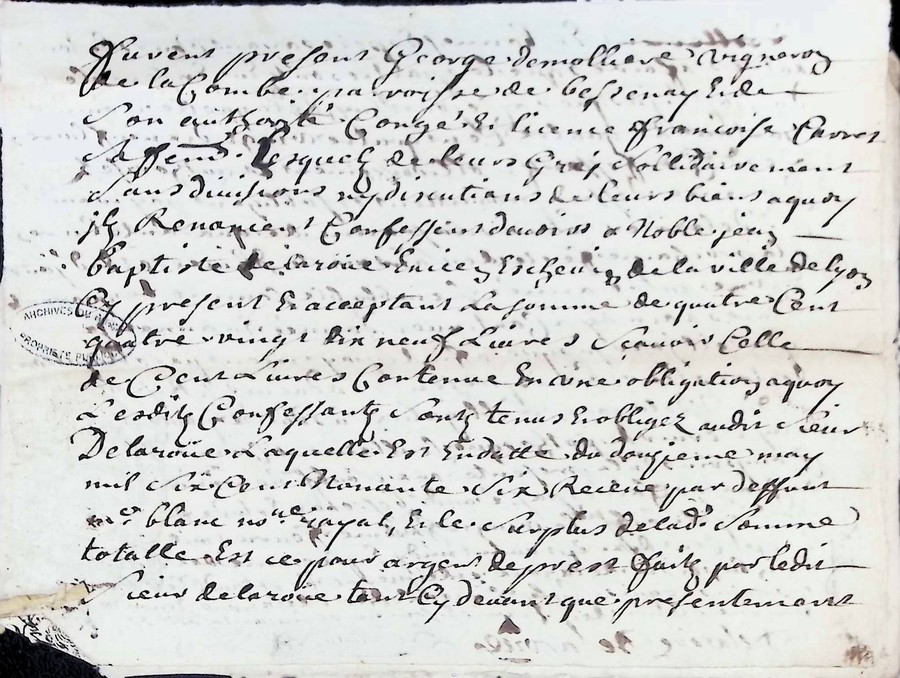 furent present George demolliere vigneron
de la Combe parroisse de bessenay Et de
Son authorité Congé Et licence francoise
Sa femme Lesquels de leurs Gréz Sollidairement
Sans divisions ny discutions de leurs biens aquoy
jls Renoncent Confessent davoir a Noble jean
baptiste delaroüe Encien Eschevin de la ville de lyon
Cy present Et acceptant La somme de quatre Cent
quatre vingt dix neuf Livres Sçavoir Celle
de Cent Livres Contenue En une obligation aquoy
Lesdits Confessants Sont tenus Et obligez audit Sieur
Delaroüe Laquelle Est En datte du douzieme may
mil Six Cent Nonante Six Receue par deffunt
me blanc nore royal, Et le Surplus de lade Somme
totalle Est ce pour argent de prest fait par ledit
Sieur delaroüe tant Cy devant que presentement
ARCHIVES DU
PROPRIETE PUBLIQUE